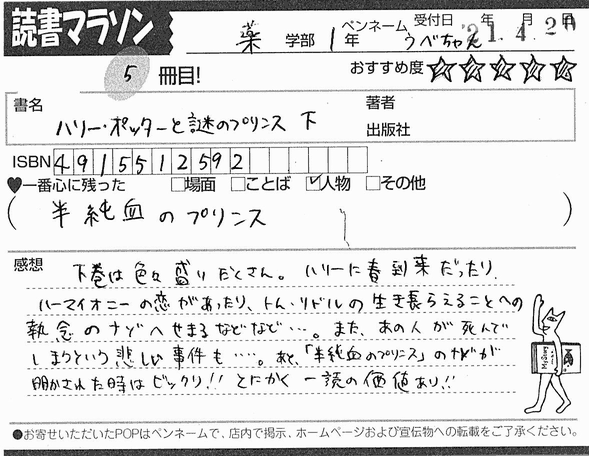 読書マラソン
薬 学部 1年 ペンネーム うべちゃん 受付日 '21年 4月 20日
5 冊目! おすすめ度 ☆☆☆☆☆
書名 ハリー・ポッターと謎のプリンス 下
著者
出版社
ISBN 4915512592
♥一番心に残った □場面 □ことば ☑人物 □その他
( 半純血のプリンス )
感想 下巻は色々盛りだくさん。ハリーに春到来だったり、
ハーマイオニーの恋があったり、トム・リドルの生き長らえることへの
執念のナゾへせまるなどなど…。また、あの人が死んで
しまうという悲しい事件も…。あと、「半純血のプリンス」のナゾが
明かされた時はビックリ!! とにかく一読の価値あり!!
●お寄せいただいたPOPはペンネームで、店内で掲示、ホームページおよび宣伝物への転載をご了承ください。